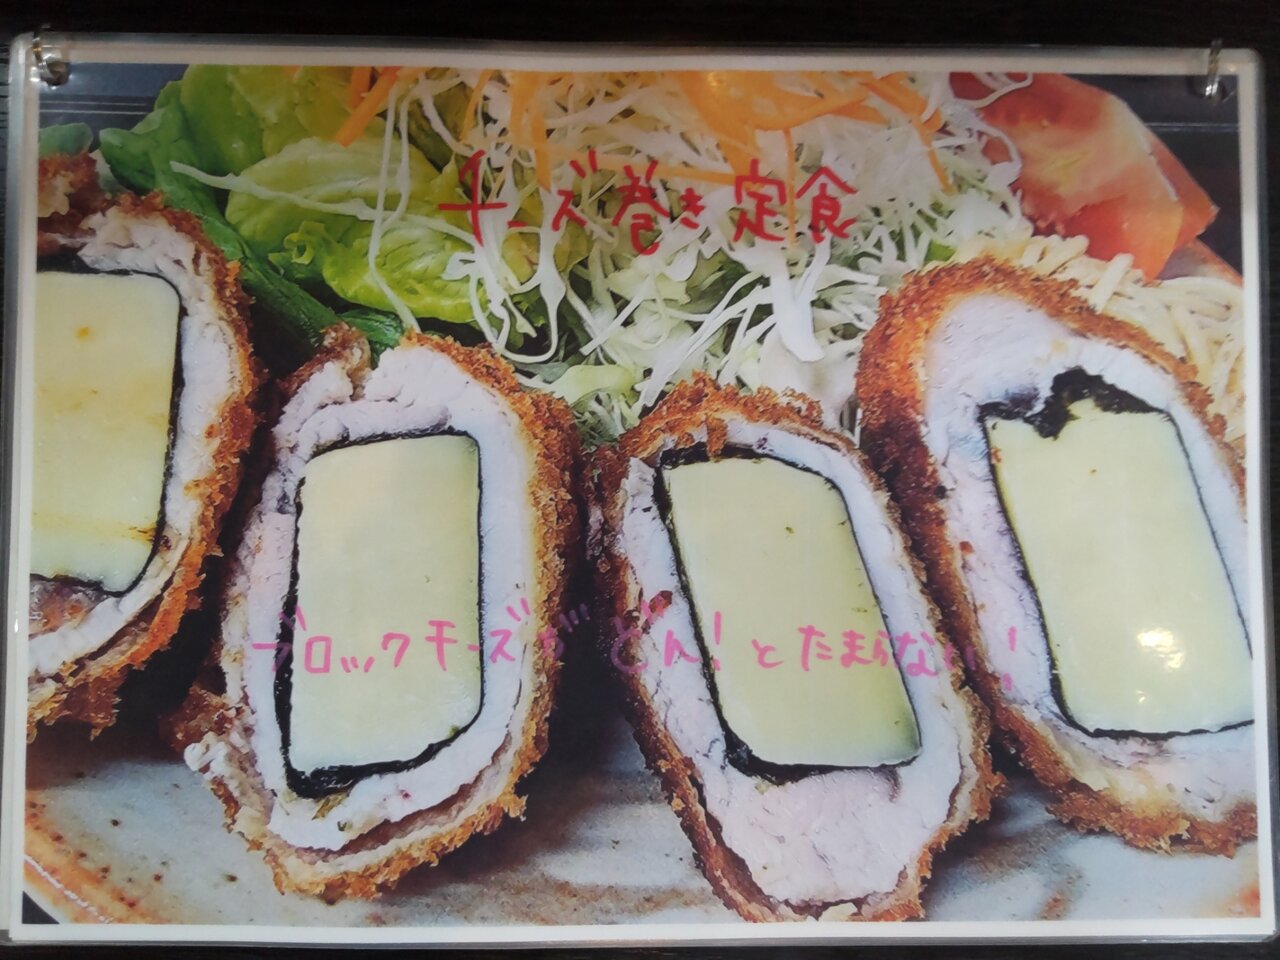 チーズ巻き定食
ブロックチーズがどん！とたまらない！